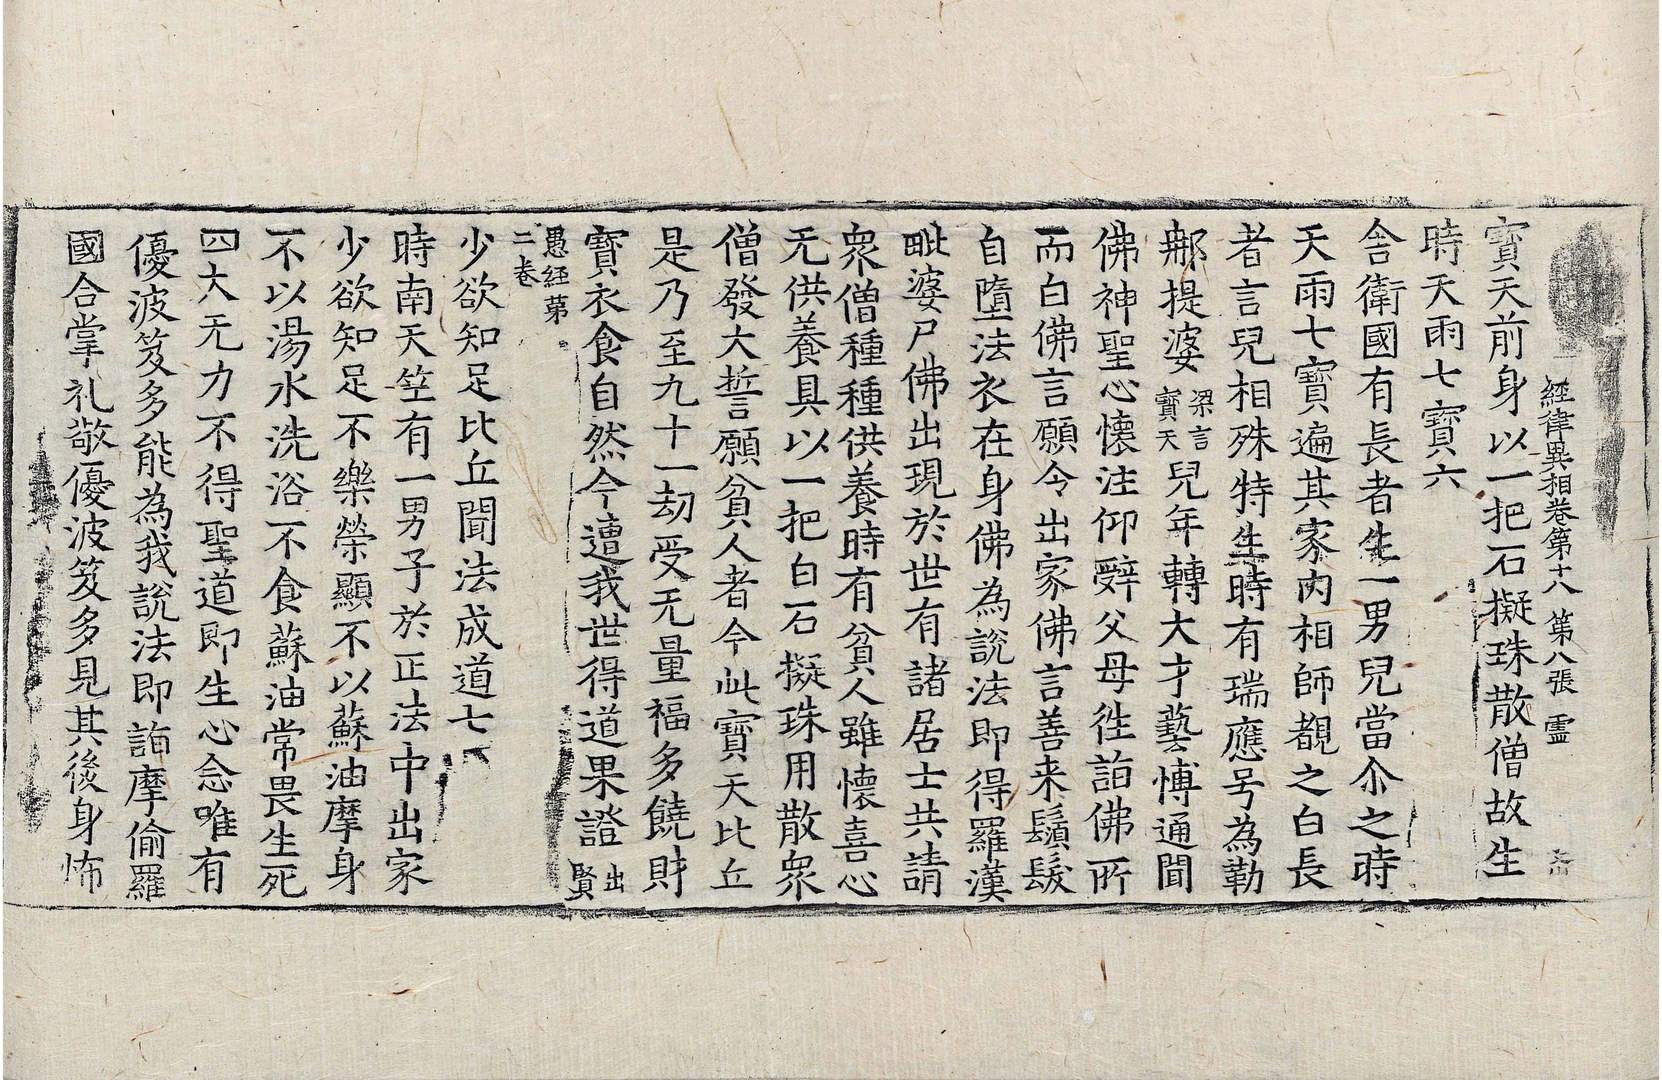 經律異相卷第十八 第八張 靈
寶天前身以一把石擬珠散僧故生
時天雨七寶六
舍衛國有長者生一男兒當尒之時
天雨七寶遍其家內相師覩之白長
者言兒相殊特生時有瑞應号為勒
那提婆梁言寶天兒年轉大才藝博通聞
佛神聖心懷注仰辝父母徃詣佛所
而白佛言願令出家佛言善来鬚髮
自墮法衣在身佛為說法即得羅漢
毗婆尸佛出現於世有諸居士共請
衆僧種種供養時有貧人雖懷喜心
无供養具以一把白石擬珠用散衆
僧發大誓願貧人者今此寶天比丘
是乃至九十一劫受无量福多饒財
寶衣食自然今遭我世得道果證出賢
愚經苐二卷
少欲知足比丘聞法成道七
時南天竺有一男子於正法中出家
少欲知足不樂榮顯不以蘇油摩身
不以湯水洗浴不食蘇油常畏生死
四大无力不得聖道即生心念唯有
優波笈多能為我說法即詣摩偷羅
國合掌礼敬優波笈多見其後身怖